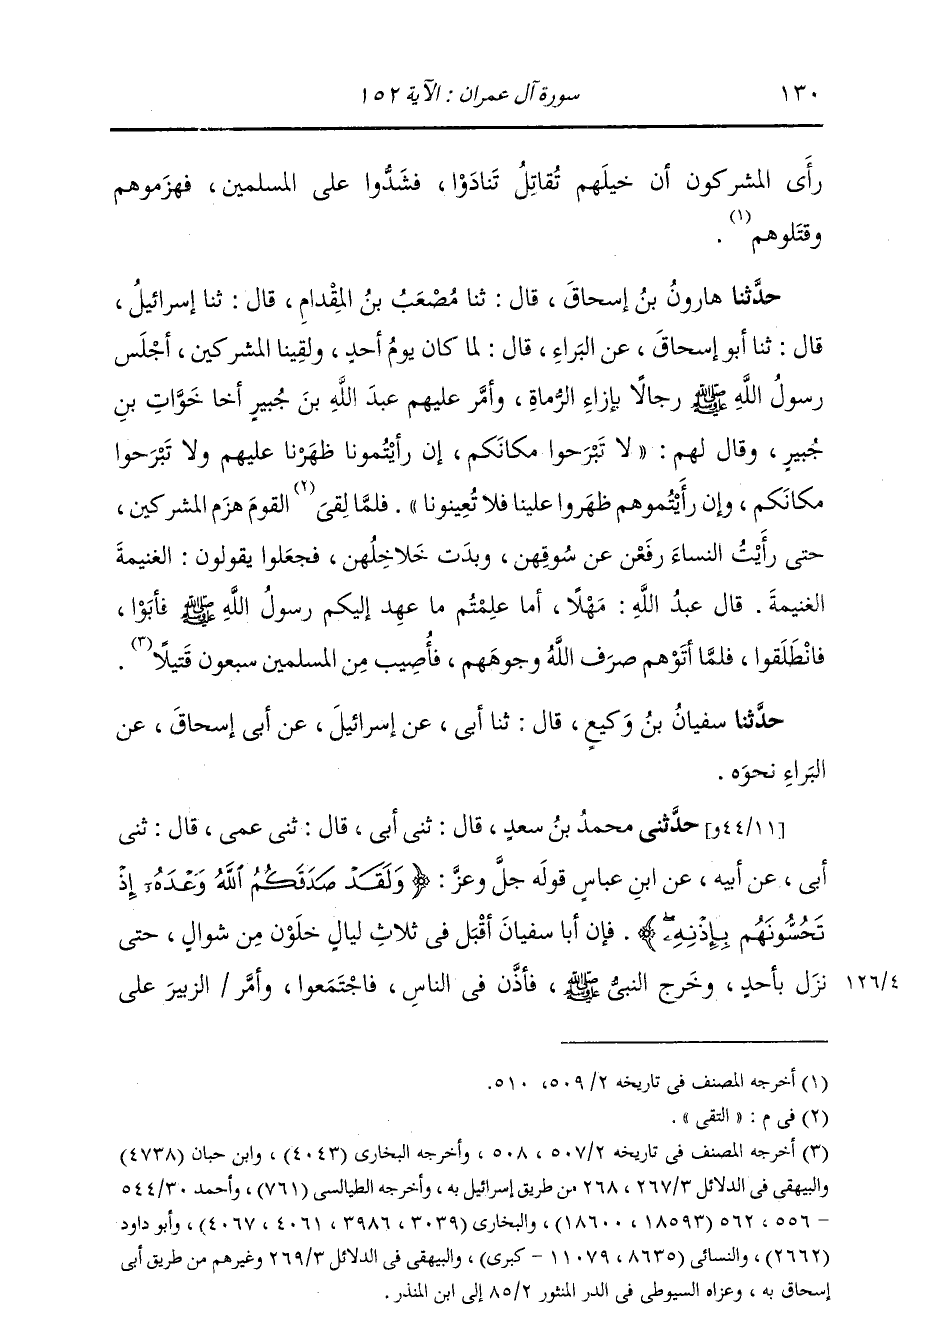 ١٣٠ سورة آل عمران : الآية ١٥٢
رأَى المشركون أن خيلَهم تُقاتِلُ تَنادَوْا ، فشَدُّوا على المسلمين ، فهزَموهم
وقتَلوهم(١) .
حدَّثنا هارونُ بنُ إسحاقَ ، قال : ثنا مُصْعَبُ بنُ المِقْدامِ ، قال : ثنا إسرائيلُ ،
قال : ثنا أبو إسحاقَ ، عن البَراءِ ، قال : لما كان يومُ أحدٍ ، ولقِينا المشركين ، أجْلَس
رسولُ اللَّهِ ﷺ رجالًا بإزاءِ الرُّماةِ ، وأمَّر عليهم عبدَ اللَّهِ بنَ جُبيرٍ أخا خَوَّاتِ بنِ
جُبيرٍ ، وقال لهم : « لا تَبْرَحوا مكانَكم ، إن رأيْتُمونا ظهَرْنا عليهم ولا تَبْرَحوا
مكانَكم ، وإن رأَيْتُموهم ظهَروا علينا فلا تُعِينونا » . فلمَّا لِقىَ(٢) القومَ هزَم المشركين ،
حتى رأَيْتُ النساءَ رفَعْن عن سُوقِهن ، وبدَت خَلاخِلُهن ، فجعَلوا يقولون : الغنيمةَ
الغنيمةَ . قال عبدُ اللَّهِ : مَهْلًا ، أما علِمْتُم ما عهِد إليكم رسولُ اللَّهِ ﷺ فأبَوْا ،
فانْطَلَقوا ، فلمَّا أتَوْهم صرَف اللَّهُ وجوهَهم ، فأُصِيب مِن المسلمين سبعون قَتيلًا(٣) .
حدَّثنا سفيانُ بنُ وَكيعٍ ، قال : ثنا أبى ، عن إسرائيلَ ، عن أبى إسحاقَ ، عن
البَراءِ نحوَه .
[٤٤/١١و] حدَّثنى محمدُ بنُ سعدٍ ، قال : ثنى أبى ، قال : ثنى عمى ، قال : ثنى
أبى ، عن أبيه ، عن ابنِ عباسٍ قولَه جلَّ وعزَّ : ﴿ وَلَقَدْ صَدَقَكُمُ ٱللَّهُ وَعْدَهُۥٓ إِذْ
تَحُسُّونَهُم بِإِذْنِهِۦۖ ﴾ . فإن أبا سفيانَ أقْبَل فى ثلاثِ ليالٍ خلَوْن مِن شوالٍ ، حتى
نزَل بأحدٍ ، وخرج النبىُّ ﷺ ، فأذَّن فى الناسِ ، فاجْتَمَعوا ، وأمَّر / الزبيرَ على ١٢٦/٤
(١) أخرجه المصنف فى تاريخه ٥٠٩/٢، ٥١٠.
(٢) فى م : « التقى » .
(٣) أخرجه المصنف فى تاريخه ٥٠٧/٢ ، ٥٠٨ ، وأخرجه البخارى (٤٠٤٣) ، وابن حبان (٤٧٣٨)
والبيهقى فى الدلائل ٢٦٧/٣ ، ٢٦٨ من طريق إسرائيل به ، وأخرجه الطيالسى (٧٦١) ، وأحمد ٥٤٤/٣٠
- ٥٥٦ ، ٥٦٢ (١٨٥٩٣ ، ١٨٦٠٠) ، والبخارى (٣٠٣٩ ، ٣٩٨٦ ، ٤٠٦١ ، ٤٠٦٧) ، وأبو داود
(٢٦٦٢) ، والنسائى (٨٦٣٥ ، ١١٠٧٩ - كبرى) ، والبيهقى فى الدلائل ٢٦٩/٣ وغيرهم من طريق أبى
إسحاق به ، وعزاه السيوطى فى الدر المنثور ٨٥/٢ إلى ابن المنذر .